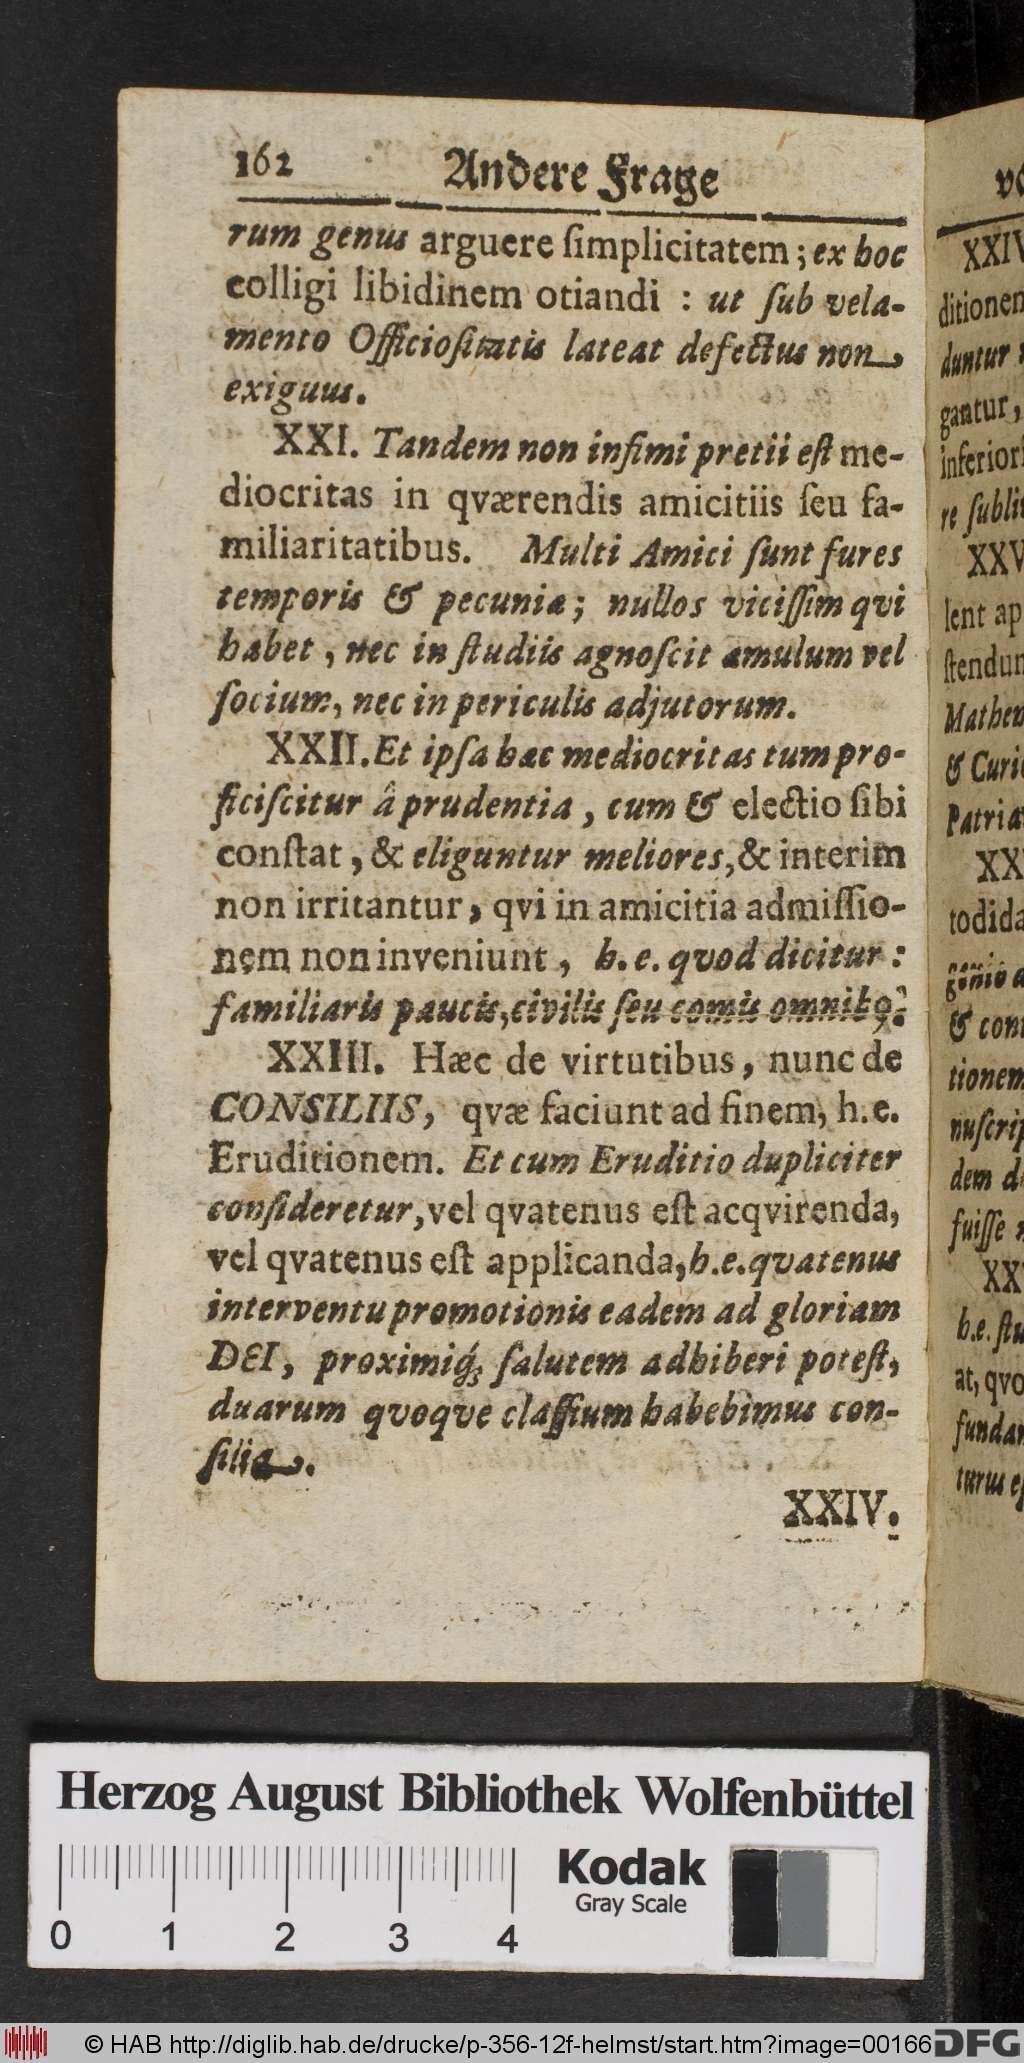 162 Andere Frage
rum genus arguere ſimplicitatem; ex hoc
colligi libidinem otiandi : ut ſub vela-
mento Officioſitatis lateat defectus non
exiguus.
XXI. Tandem non infimi pretii eſt me-
diocritas in qværendis amicitiis ſeu fa-
miliaritatibus. Multi Amici ſunt fures
temporis & pecuniæ; nullos viciſſim qvi
habet, nec in ſtudiis agnoſcit æmulum vel
ſocium, nec in periculis adjutorum.
XXII. Et ipſa hæc mediocritas tum pro-
ficiſcitur â prudentia, cum & electio ſibi
conſtat, & eliguntur meliores, & interim
non irritantur, qvi in amicitia admiſſio-
nem non inveniunt, h.e. qvod dicitur:
familiaris paucis, civilis ſeu comis omnibꝯ.
XXIII. Hæc de virtutibus, nunc de
CONSILIIS, qvæ faciunt ad finem, h.e.
Eruditionem. Et cum Eruditio dupliciter
conſideretur, vel qvatenus eſt acqvirenda,
vel qvatenus eſt applicanda, h.e. qvatenus
interventu promotionis eadem ad gloriam
DEI, proximiq́; ſalutem adhiberi poteſt,
duarum qvoqve claſſium habebimus con-
ſilia.
XXIV.
XXIV
ditionem
duntur
gantur,
inferiori
re ſubli
XXV
lent ap
ſtendun
Mathem
& Curi
Patria
XX
todida
genio a
& con
tionem
nuſcrip
dem d
fuiſſe
XX
h.e. ſtu
at, qvo
fundar
turus e
Herzog August Bibliothek Wolfenbüttel
Kodak
Gray Scale
0 1 2 3 4
© HAB http://diglib.hab.de/drucke/p-356-12f-helmst/start.htm?image=00166 DFG